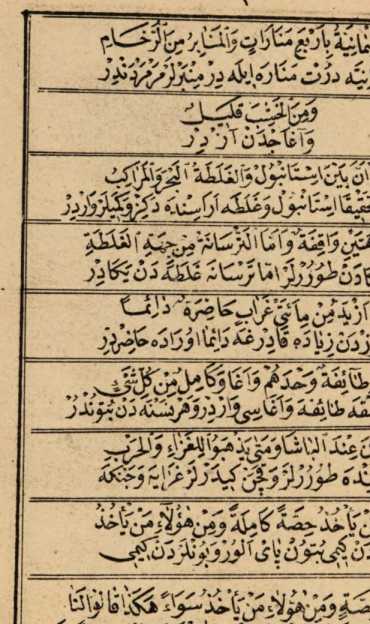 ثمانية بأربع منارات والمنابر من الرخام
در منبرلر مرمردندر
ومن الخشب قليل
وآغاجدن آز در
ان بين استانبول والغلطة البحر والمراكب
تحقيقا استانبول وغلطه اراسنده دكز وكميلر واردر
واقفة واما الترسانة من جهة الغلطة
طورورلر اما ترسانه غلطه دن يكادر
ازيد من مائتي غراب حاضرة دائما
دن زياده قادرغه دايما اوراده حاضردر
طائفة وحدهم واغا وكامل من كل شئ
طائفه واغاسى واردر وهر نسنه دن بتوندر
عند الباشا ومتى يذهبوا للغزاء والحرب
طورورلر وقچن كيدرلر غزايه وجنكه
من يأخذ حصة كاملة ومن هؤلاء من يأخذ
كيمى بتون پاى آلور وبونلردن كيمى
ومن هؤلاء من يأخذ سواء هكذا قانو لنا